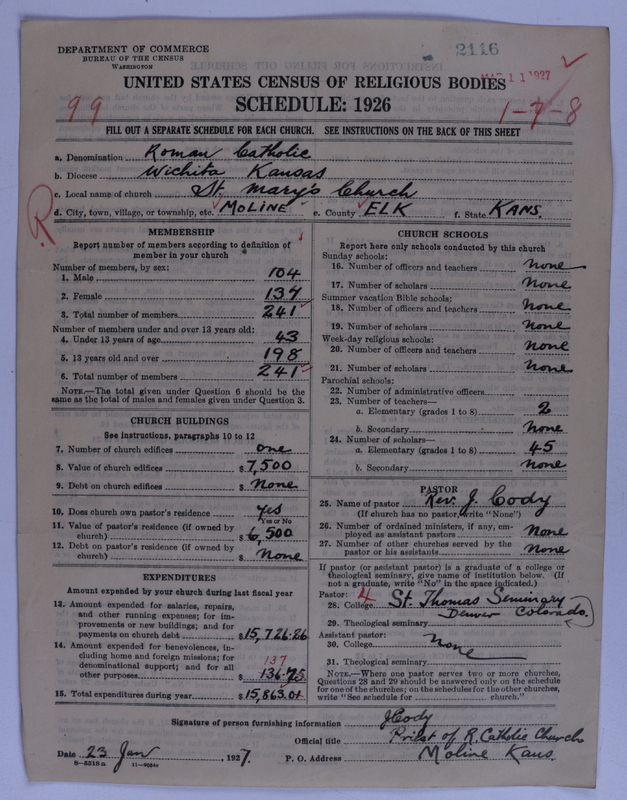 DEPARTMENT OF COMMERCE
BUREAU OF THE CENSUS
WASHINGTON
2116
MAR 11 1927
UNITED STATES CENSUS OF RELIGIOUS BODIES
99
SCHEDULE: 1926
1-7-8
FILL OUT A SEPARATE SCHEDULE FOR EACH CHURCH. SEE INSTRUCTIONS ON THE BACK OF THIS SHEET
a. Denomination Roman Catholic
b. Diocese Wichita Kansas
c. Local name of church St. Mary's Church
d. City, town, village, or township, etc. MOLINE e. County ELK f. State KANS.
R
MEMBERSHIP
Report number of members according to definition of
member in your church
Number of members, by sex:
1. Male 104
2. Female 137
3. Total number of members 241
Number of members under and over 13 years old:
4. Under 13 years of age 43
5. 13 years old and over 198
6. Total number of members 241
NOTE.—The total given under Question 6 should be the
same as the total of males and females given under Question 3.
CHURCH BUILDINGS
See instructions, paragraphs 10 to 12
7. Number of church edifices one
8. Value of church edifices $7,500
9. Debt on church edifices $ None
10. Does church own pastor's residence yes
Yes or No
11. Value of pastor's residence (if owned by
church) $6,500
12. Debt on pastor's residence (if owned by
church) $ None
EXPENDITURES
Amount expended by your church during last fiscal year
13. Amount expended for salaries, repairs,
and other running expenses; for im-
provements or new buildings; and for
payments on church debt $15,726.26
14. Amount expended for benevolences, in-
cluding home and foreign missions; for
denominational support; and for all
other purposes 137
$ 136.75
15. Total expenditures during year $15,863.01
CHURCH SCHOOLS
Report here only schools conducted by this church
Sunday schools:
16. Number of officers and teachers None
17. Number of scholars None
Summer vacation Bible schools:
18. Number of officers and teachers None
19. Number of scholars None
Week-day religious schools:
20. Number of officers and teachers None
21. Number of scholars None
Parochial schools:
22. Number of administrative officers
23. Number of teachers—
a. Elementary (grades 1 to 8) 2
b. Secondary None
24. Number of scholars—
a. Elementary (grades 1 to 8) 45
b. Secondary None
PASTOR
25. Name of pastor Rev. J. Cody
(If church has no pastor, write "None")
26. Number of ordained ministers, if any, em-
ployed as assistant pastors None
27. Number of other churches served by the
pastor or his assistants None
If pastor (or assistant pastor) is a graduate of a college or
theological seminary, give name of institution below. (If
not a graduate, write "No" in the space indicated.)
Pastor: 4
28. College St. Thomas Seminary
Denver Colorado.
29. Theological seminary
Assistant pastor:
30. College None
31. Theological seminary
NOTE.—Where one pastor serves two or more churches,
Questions 28 and 29 should be answered only on the schedule
for one of the churches; on the schedules for the other churches,
write "See schedule for church."
Signature of person furnishing information J Cody
Official title Priest of R. Catholic Church
Date 23 Jan, 1927. P. O. Address Moline Kans.